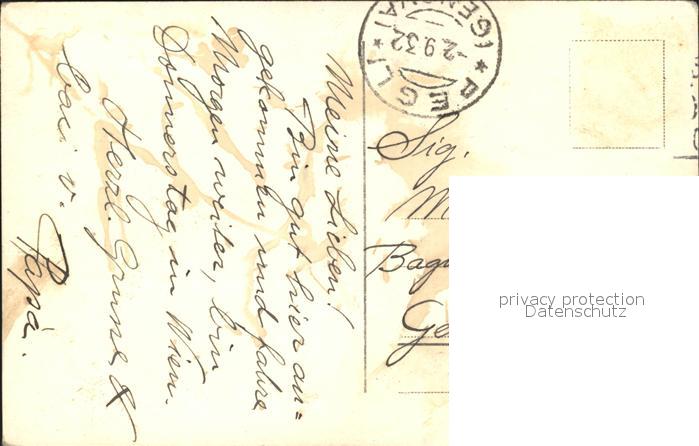 Meine Lieben!
Bin gut hier an=
gekommen und fahre
Morgen weiter, bin
Donnerstag in Wien.
Herzl. Grüsse &
v.
Papa.
PEGLI
(GENOVA)
-2.9.32
Sig.
M
Bag
Ge
privacy protection
Datenschutz